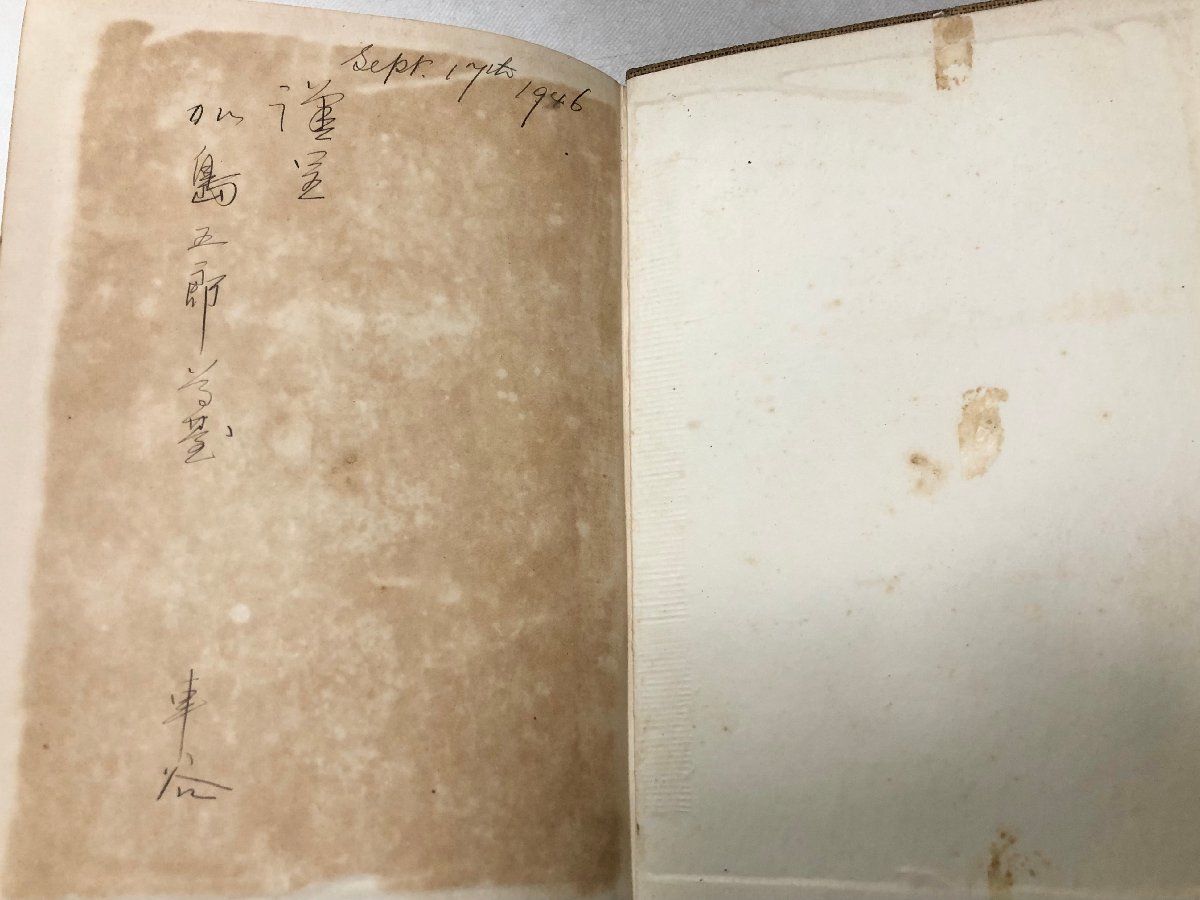 Sept. 17th
1946
謹呈
加島五郎尊台
車谷